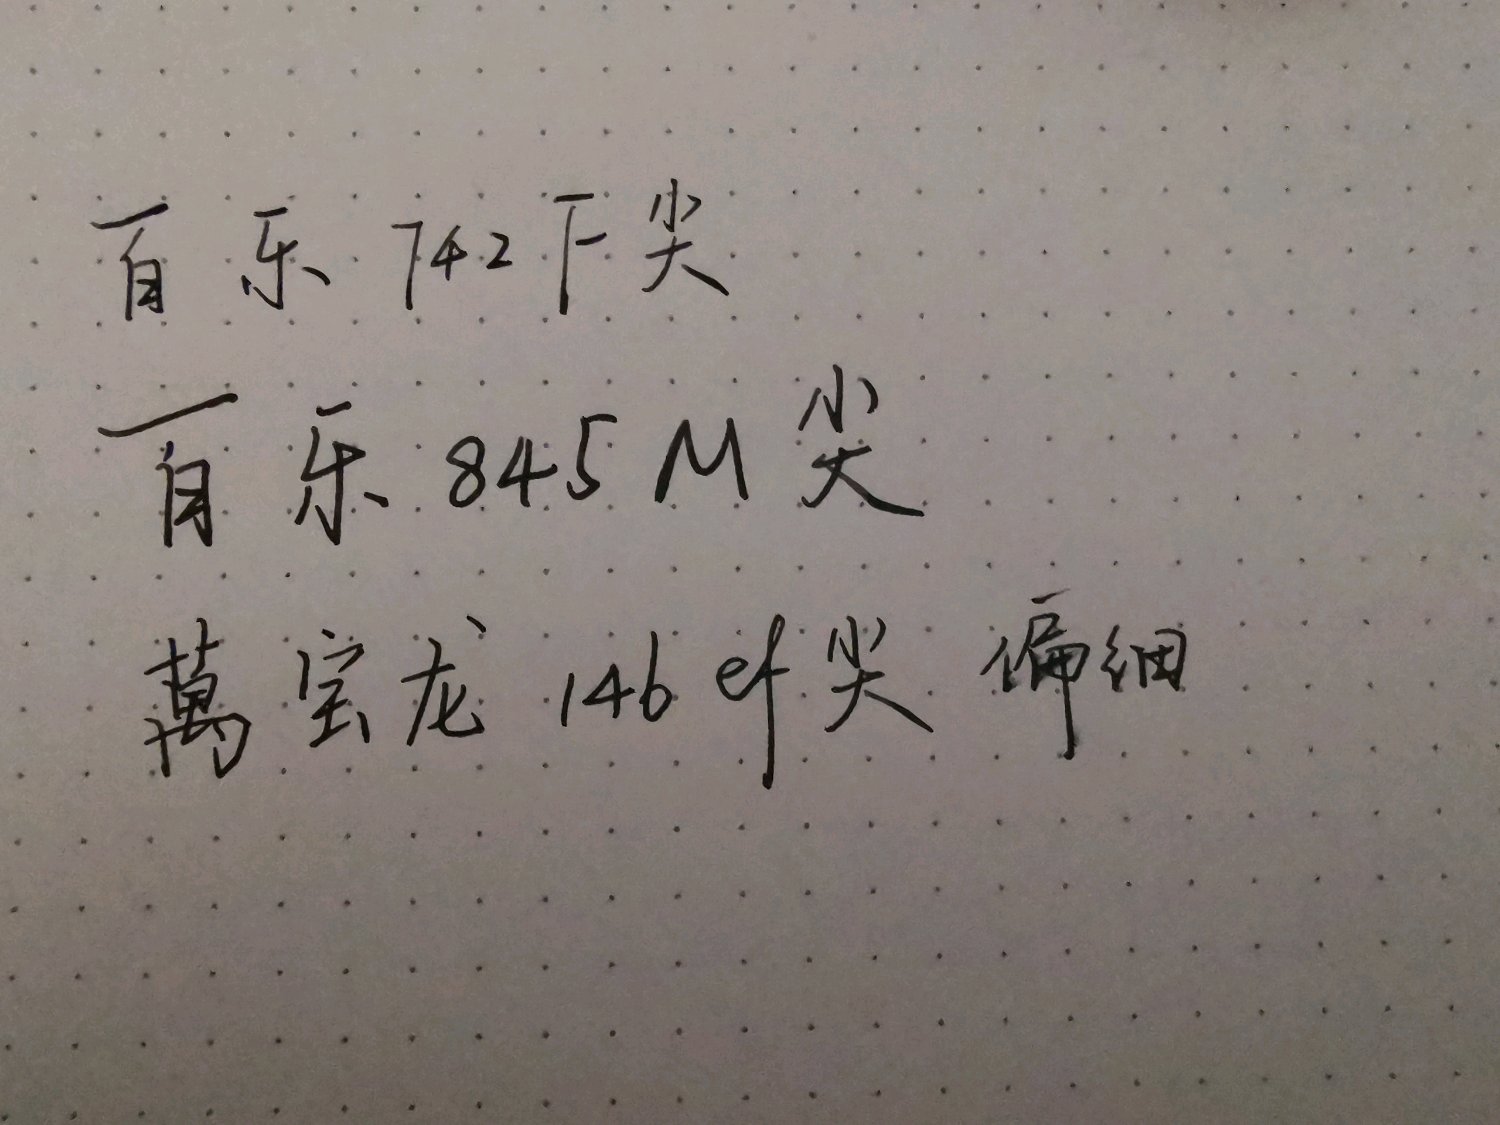 百乐 742 F 尖
百乐 845 M 尖
萬宝龙 146 ef 尖 偏细